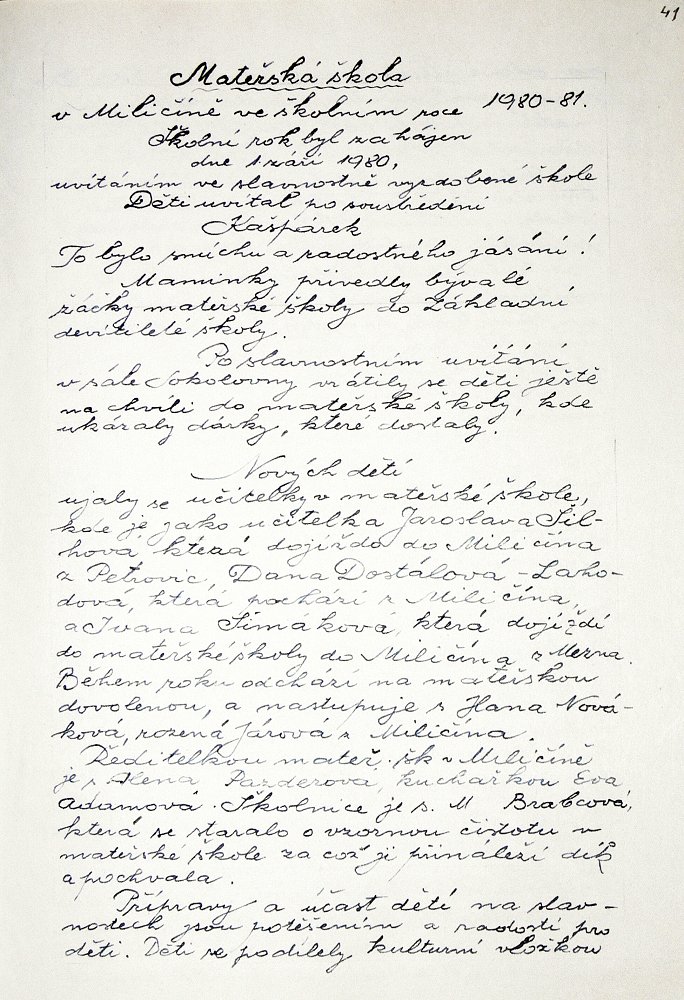 41
Mateřská škola
v Miličíně ve školním roce 1980-81.
Školní rok byl zahájen
dne 1. září 1980,
uvítáním ve slavnostně vyzdobené škole
Děti uvítal po soustředění
Kašpárek
To bylo smíchu a radostného jásání!
Maminky přivedly bývalé
žáčky mateřské školy do Základní
devítileté školy.
Po slavnostním uvítání
v sále Sokolovny vrátily se děti ještě
na chvíli do mateřské školy, kde
ukázaly dárky, které dostaly.
Nových dětí
ujaly se učitelky v mateřské škole,
kde je jako učitelka Jaroslava Šil-
hová která dojíždo do Miličína
z Petrovic, Dana Dostálová - Laho-
dová, která pochází z Miličína,
a Ivana Šimáková, která dojíždí
do mateřské školy do Miličína z Mezna.
Během roku odchází na mateřskou
dovolenou, a nastupuje s Hana Nová-
ková, rozená Járová z Miličína.
Ředitelkou mateř. šk v Miličíně
je s Alena Pazderová, kuchařkou Eva
Adamová. Školnice je s. M Brabcová,
která se staralo o vzornou čistotu v
mateřské škole za což jí přináleží dík
a pochvala.
Přípravy a účast dětí na slav-
nostech jsou potěšením a radostí pro
děti. Děti se podílely kulturní vložkou